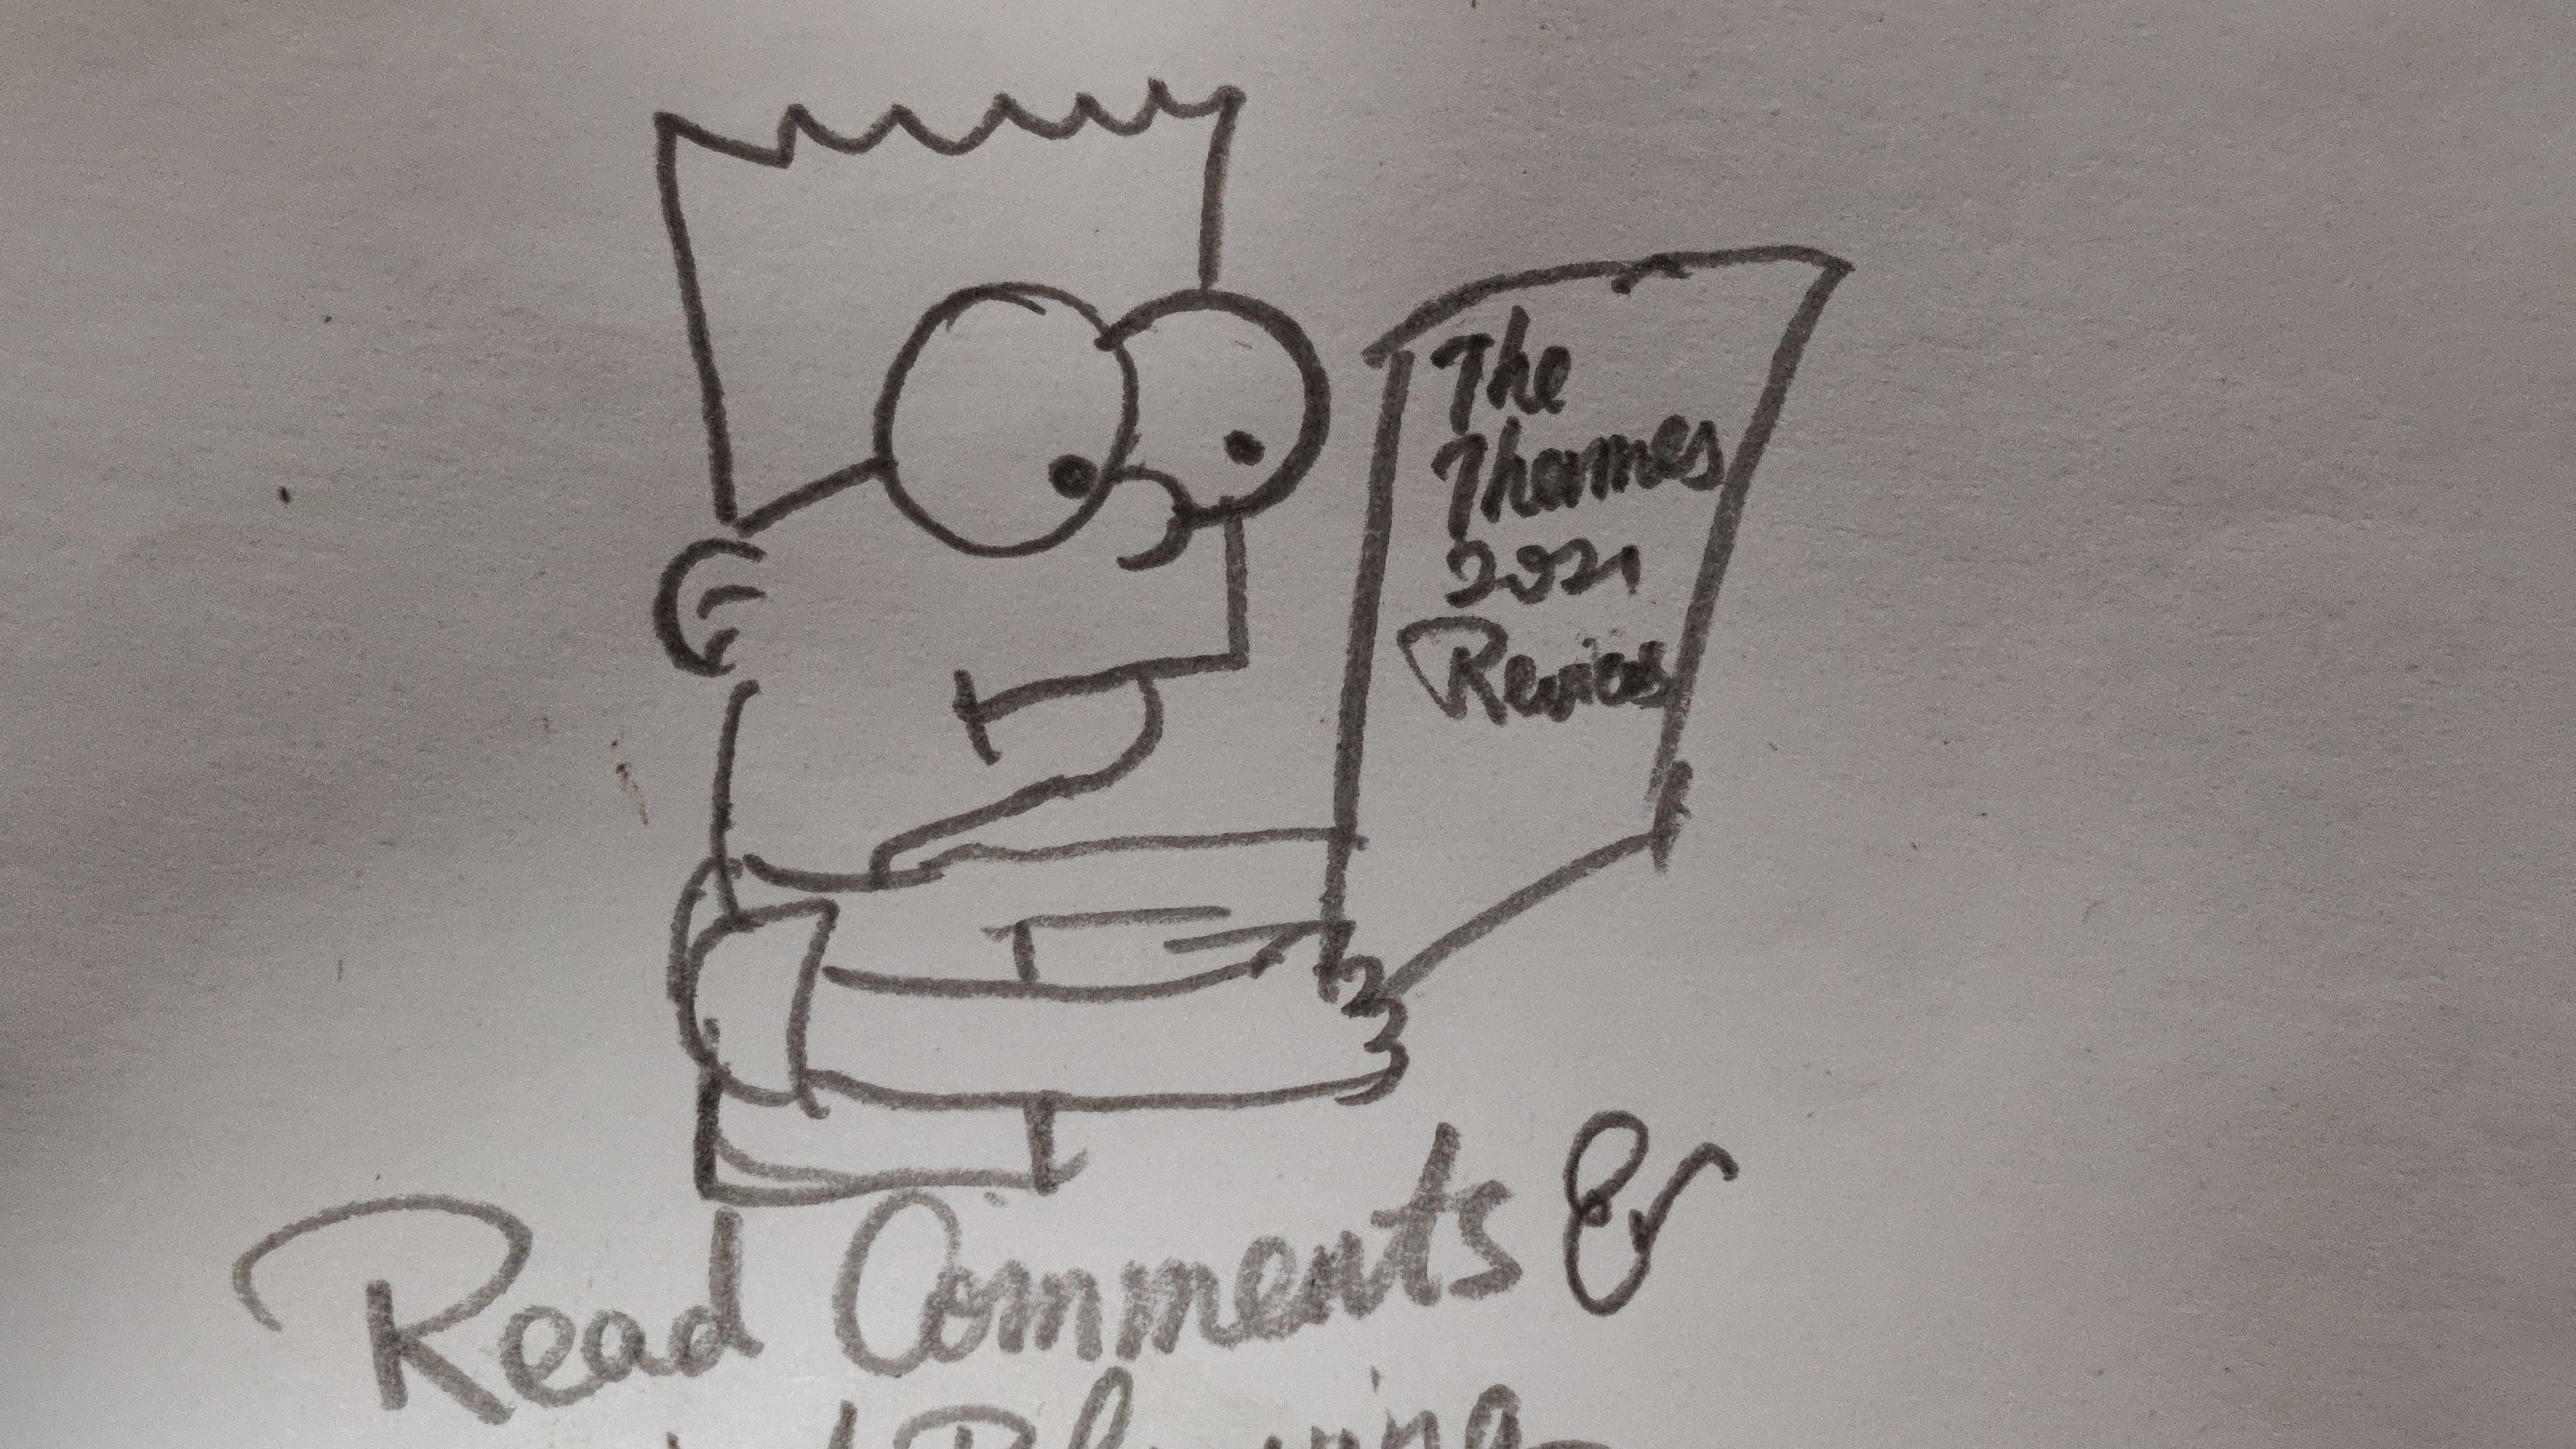 The
Thames
2021
Reviews
Read Comments &